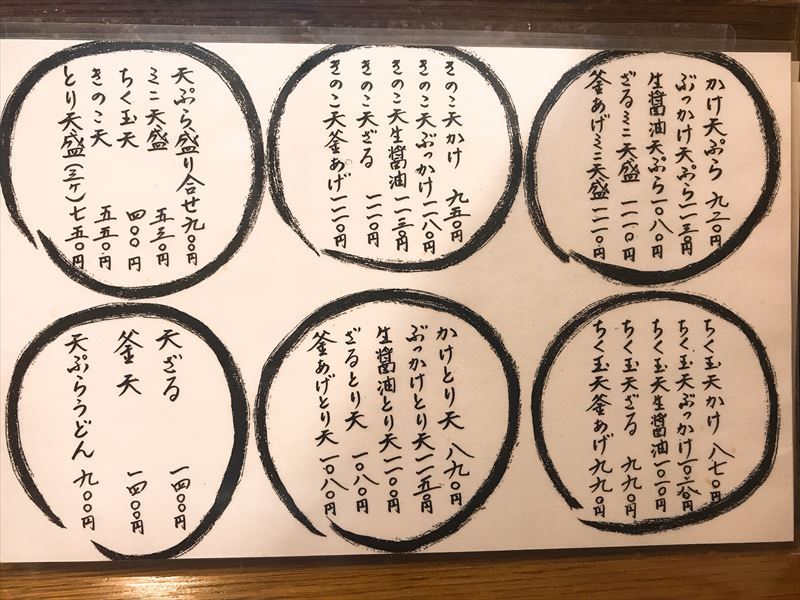 かけ天ぷら 九三〇円
ぶっかけ天ぷら 一一三〇円
生醤油天ぷら 一〇八〇円
ざるミニ天盛 一一一〇円
釜あげミニ天盛 一一一〇円
きのこ天かけ 九五〇円
きのこ天ぶっかけ 一一八〇円
きのこ天生醤油 一一三〇円
きのこ天ざる 一一一〇円
きのこ天釜あげ 一一一〇円
天ぷら盛り合せ 九〇〇円
ミニ天盛 五三〇円
ちく玉天 四〇〇円
きのこ天 五五〇円
とり天盛(三ヶ) 七五〇円
ちく玉天かけ 八七〇円
ちく玉天ぶっかけ
ちく玉天生醤油 一〇一〇円
ちく玉天ざる 九九〇円
ちく玉天釜あげ 九九〇円
かけとり天 八九〇円
ぶっかけとり天 一一五〇円
生醤油とり天 一一〇〇円
ざるとり天 一〇八〇円
釜あげとり天 一〇八〇円
天ざる 一四〇〇円
釜天 一四〇〇円
天ぷらうどん 九〇〇円